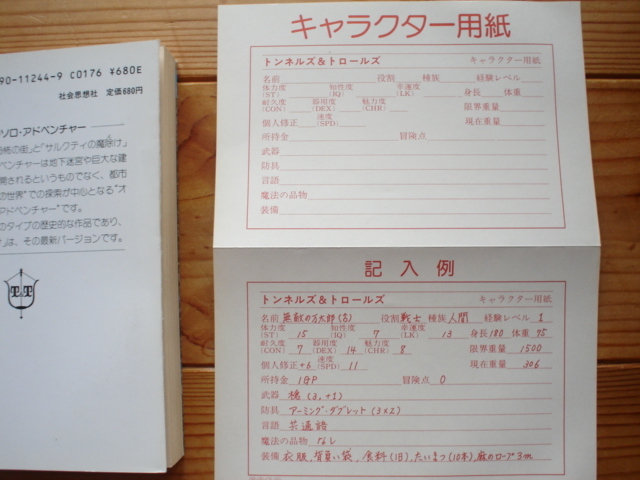 90-11244-9 C0176 ¥680E
社会思想社 定価680円
ソロ・アドベンチャー
の街」と「サルクティの魔除け」
ベンチャーは地下迷宮や巨大な建
開されるというものでなく、都市
の世界"での探索が中心となる"オ
アドベンチャー"です。
のタイプの歴史的な作品であり、
は、その最新バージョンです。
キャラクター用紙
トンネルズ&トロールズ キャラクター用紙
名前 役割 種族 経験レベル
体力度(ST) 知性度(IQ) 幸運度(LK) 身長 体重
耐久度(CON) 器用度(DEX) 魅力度(CHR) 限界重量
個人修正 速度(SPD) 現在重量
所持金 冒険点
武器
防具
言語
魔法の品物
装備
記入例
トンネルズ&トロールズ キャラクター用紙
名前 無敵の万太郎(古) 役割 戦士 種族 人間 経験レベル 1
体力度(ST) 15 知性度(IQ) 7 幸運度(LK) 13 身長 180 体重 75
耐久度(CON) 7 器用度(DEX) 14 魅力度(CHR) 8 限界重量 1500
個人修正 +6 速度(SPD) 11 現在重量 306
所持金 1GP 冒険点 0
武器 槍(3,+1)
防具 アーミング・ダブレット(3×2)
言語 共通語
魔法の品物 なし
装備 衣服,背負い袋,食料(1日),たいまつ(10本),麻のロープ3m